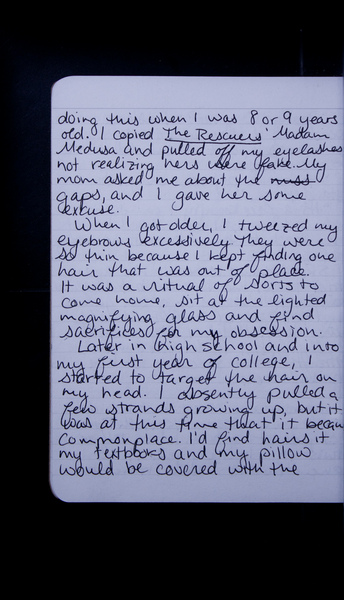 doing this when I was 8 or 9 years
old. I copied The Rescuers' Madam
Medusa and pulled off my eyelashes
not realizing hers were fake. My
mom asked me about the
gaps, and I gave her some
excuse.
When I got older, I tweezed my
eyebrows excessively. They were
so thin because I kept finding one
hair that was out of place.
It was a ritual of sorts to
come home, sit at the lighted
magnifying glass and find
sacrifices for my obsession.
Later in high school and into
my first year of college, I
started to target the hair on
my head. I absently pulled a
few strands growing up, but it
was at this time that it became
commonplace. I'd find hairs it
my textbooks and my pillow
would be covered with the